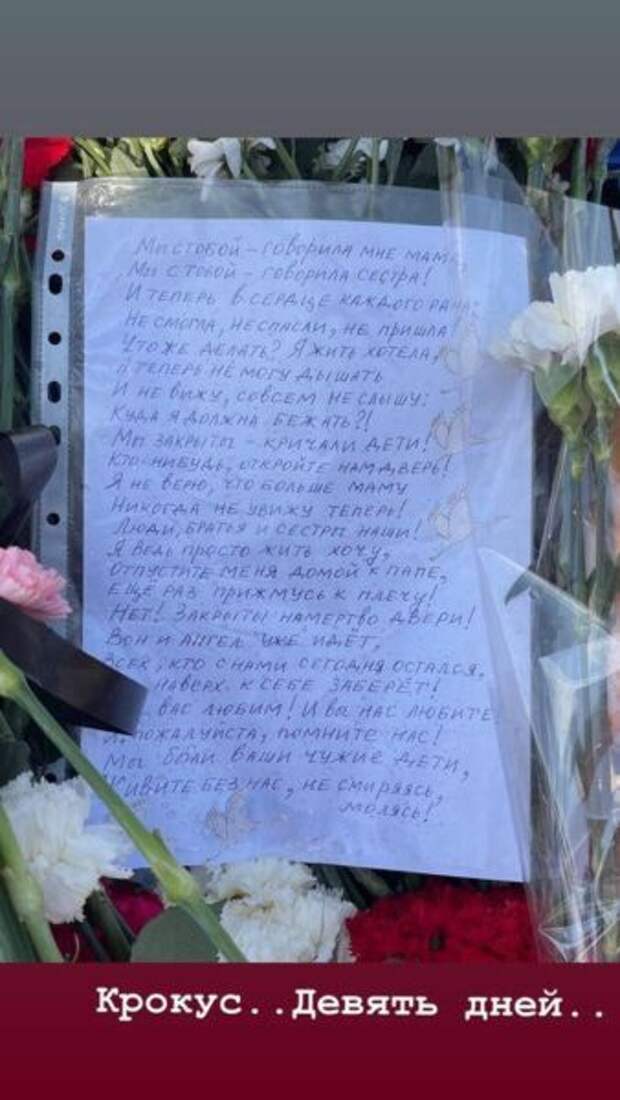 Мы с тобой – говорила мне мама,
Мы с тобой – говорила сестра!
И теперь в сердце каждого рана:
Не смогла, не спасли, не пришла!
Что же делать? Я жить хотела,
А теперь не могу дышать
И не вижу, совсем не слышу: –
Куда я должна бежать?!
Мы закрыты – кричали дети!
Кто-нибудь, откройте нам дверь!
Я не верю, что больше маму
Никогда не увижу теперь!
Люди, братья и сестры наши!
Я ведь просто жить хочу,
Отпустите меня домой к папе,
Еще раз прижмусь к плечу!
Нет! Закрыты намертво двери!
Вон и ангел уже идёт,
Всех, кто с нами сегодня остался,
наверх к себе заберёт!
вас любим! И вы нас любите
И, пожалуйста, помните нас!
Мы были ваши чужие дети,
Живите без нас, не смиряясь,
молясь!
Крокус..Девять дней..